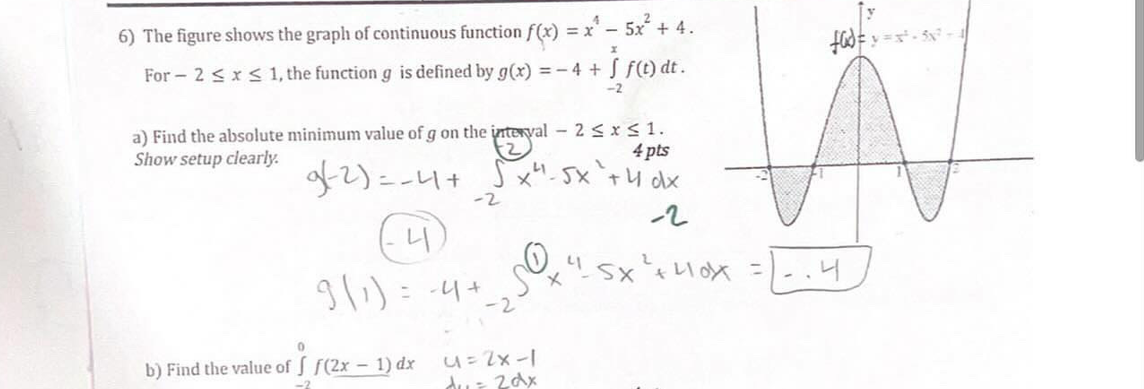 6) The figure shows the graph of continuous function f(x) = x⁴ − 5x² + 4.
For − 2 ≤ x ≤ 1, the function g is defined by g(x) = − 4 + ∫₋₂ˣ f(t) dt.
a) Find the absolute minimum value of g on the interval − 2 ≤ x ≤ 1.
Show setup clearly. 4 pts
g(-2) = -4 + ∫₋₂⁻² x⁴-5x²+4 dx
-2
-4
g(1) = -4 + ∫₋₂¹ x⁴-5x²+4 dx = -.4
b) Find the value of ∫₋₂⁰ f(2x − 1) dx u = 2x-1
du = 2dx
y
f(x)= y = x⁴ - 5x²
-2 -1 1 2